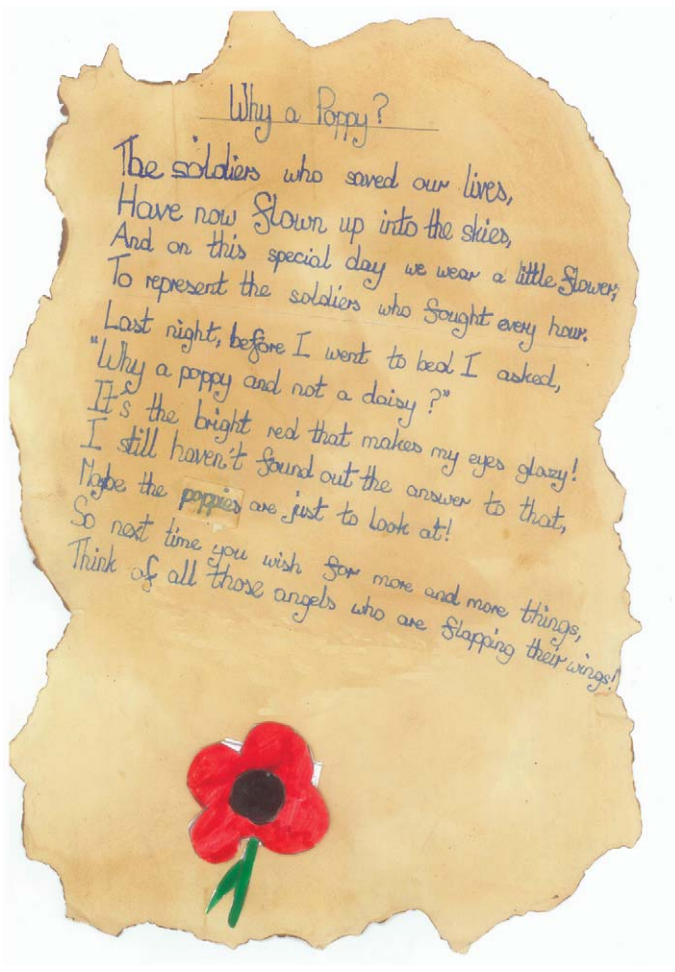 Why a Poppy?
The soldiers who saved our lives,
Have now flown up into the skies,
And on this special day we wear a little flower,
To represent the soldiers who fought every hour.
Last night, before I went to bed I asked,
"Why a poppy and not a daisy?"
It's the bright red that makes my eyes glazy!
I still haven't found out the answer to that,
Maybe the poppies are just to look at!
So next time you wish for more and more things,
Think of all those angels who are flapping their wings!